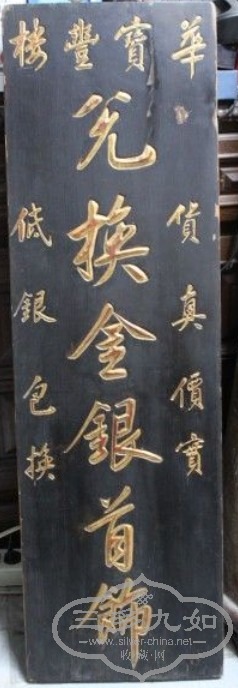 華寶豐樓
貨真價實
兌換金銀首飾
低銀包換
三陽九如
www.silver-china.net
收藏网